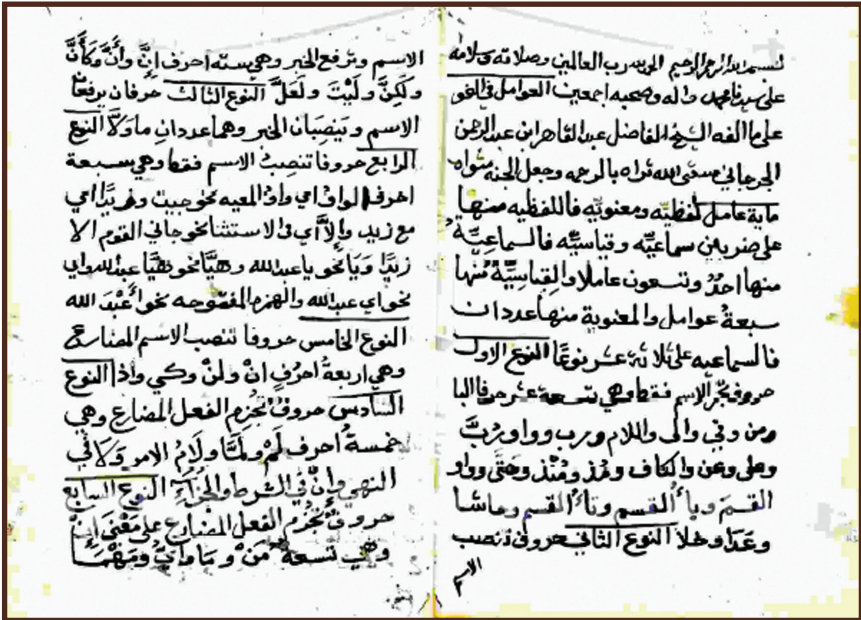 بسم الله الرحمن الرحيم الحمد لله رب العالمين وصلاته وسلامه
على سيدنا محمد واله وصحبه اجمعين العوامل في النحو
على ما الفه الشيخ الفاضل عبد القاهر ابن عبد الرحمن
الجرجاني سقى الله ثراه بالرحمه وجعل الجنة مثواه
ماية عامل لفظيّه ومعنويّه فاللفظيه منها
على ضربين سماعيّه وقياسيّه فالسماعيّة
منها احدٌ وتسعون عاملا والقياسيّة منها
سبعة عوامل والمعنوية منها عددان
فالسماعيه على ثلاثة عشر نوعًا النوع الاول
حروف تجر الاسم فقط وهي تسعة عشر حرفا البا
ومن وفي والى واللام ورب وواو ربَّ
وعلى وعن والكاف ومذ ومنذ وحتى وواو
القسم وباءُ القسم وتاءُ القسم وحاشا
وعدا وخلا النوع الثاني حروف تنصب
الاسم
الاسم وترفع الخبر وهي سته احرف إنَّ وأنَّ وكأَنَّ
ولكنَّ وليْتَ ولعَلَّ النوع الثالث حرفان يرفعا
الاسم وينصِبَان الخبر وهما عددان ما ولَا النوع
الرابع حروفا تنصِبُ الاسم فقط وهي سبعة
احرف الواو اي واو المعيه نحو جيت وزيدًا اي
مع زيد وإلَّا اي في الاستثنا نحو جاني القوم الا
زيدًا ويَا نحو يا عبد الله وهيَّا نحو هيَّا عبد الله واي
نحو اي عبد الله والهمزه المفتوحه نحو أعَبْدَ الله
النوع الخامس حروفا تنصب الاسم المضارع
وهي اربعةُ احرُفٍ انْ ولنْ وكي واذا النوع
السادس حروفٌ تجزم الفعل المضارع وهي
خمسةُ احرف لَمْ ولمَّا ولَامُ الامر ولَا في
النهي وإنْ في الشرط والجزآءِ النوع السابع
حروفٌ تجزم الفعل المضارع على معْنَى إِنْ
وهي تسعة مَنْ ومَا وايٌّ ومَهْمَا